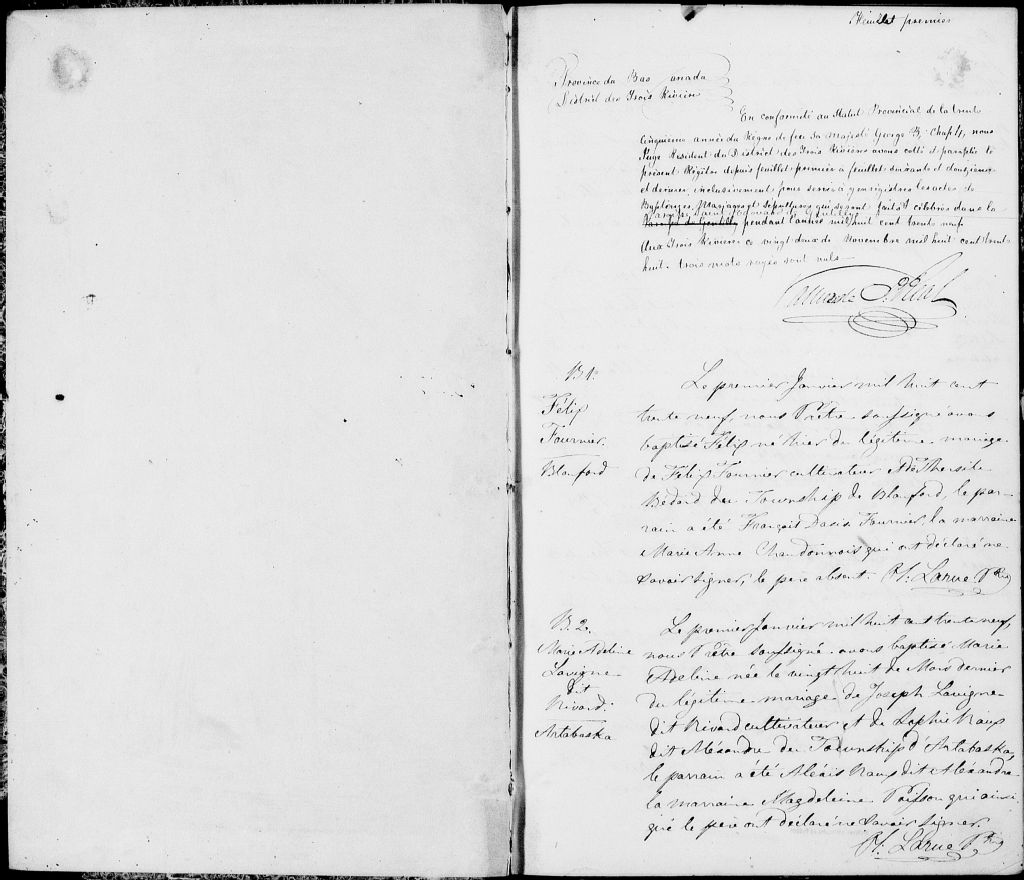 feuillet premier
Province du Bas Canada
District des Trois Rivières
En conformité au Statut Provincial de la trente
Cinquieme année du Règne de feu Sa Majesté George 3, Chap 4, nous
Juge Résident du District des Trois Rivières avons cotté et paraphé le
présent Régitre depuis feuillet premier à feuillet soixante et douzieme
et dernier, inclusivement, pour servir à y enregistrer les actes de
Baptêmes, Mariages et Sépultures qui seront faits et célébrés dans la
Paroisse de Gentilly pendant l'année mil huit cent trente neuf
Aux Trois Rivières ce vingt deux de Novembre mil huit cent trente
huit. trois mots rayés sont nuls
B 1.
Félix
Fournier.
Blanford
Le premier Janvier mil huit cent
trente neuf, nous Prêtre soussigné avons
baptisé Félix né hier du légitime mariage
de Félix Fournier cultivateur et de Thersile
Bedard du Township de Blanford, le par-
rain a été François Fournier, la marraine
Marie Anne Chandonnois qui ont déclaré ne
savoir signer, le pere absent. Larue Ptre
B. 2.
Marie Adeline
Lavigne
dit
Rivard.
Artabaska
Le premier Janvier mil huit cent trente neuf,
nous Prêtre soussigné avons baptisé Marie
Adeline née le vingt huit de dernier
du légitime mariage de Joseph Lavigne
dit Rivard cultivateur et de Sophie
dit Aléxandre du Township d'Artabaska,
le parrain a été Aléxis dit Aléxandre
la marraine Magdeleine Poisson qui ainsi
que le pere ont déclaré ne savoir signer.
Larue Ptre